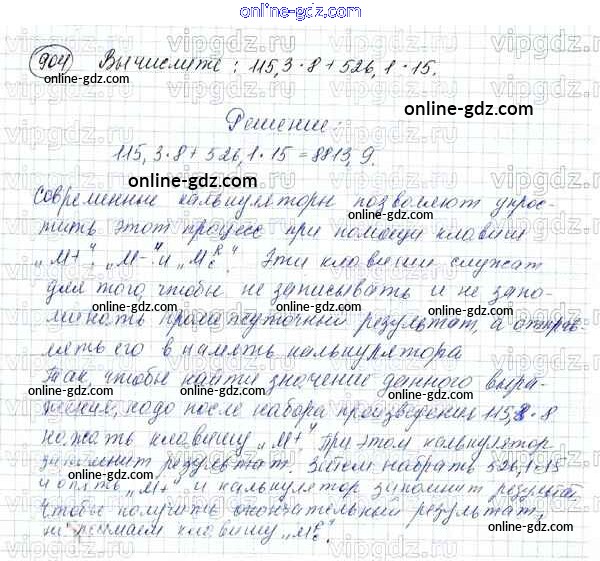 online-gdz.com
904 Вычислите: 115,3·8+526,1·15.
online-gdz.com
online-gdz.com
Решение:
115,3·8+526,1·15=8813,9.
online-gdz.com
Современные калькуляторы позволяют упрос-
тить этот процесс при помощи клавиш
„М+", „М-" и „М R C". Эти клавиши служат
для того, чтобы не записывать и не запо-
минать промежуточный результат, а отправ-
лять его в память калькулятора
Так, чтобы найти значение данного выра-
жения, надо после набора произведения 115,3·8
нажать клавишу „М+". При этом калькулятор
запомнит результат. Затем набрать 526,1·15
и опять „М+" и калькулятор запомнит результат.
Чтобы получить окончательный результат,
нажимаем клавишу „М R C".
online-gdz.com
online-gdz.com
online-gdz.com
online-gdz.com
online-gdz.com
online-gdz.com
online-gdz.com
online-gdz.com
online-gdz.com